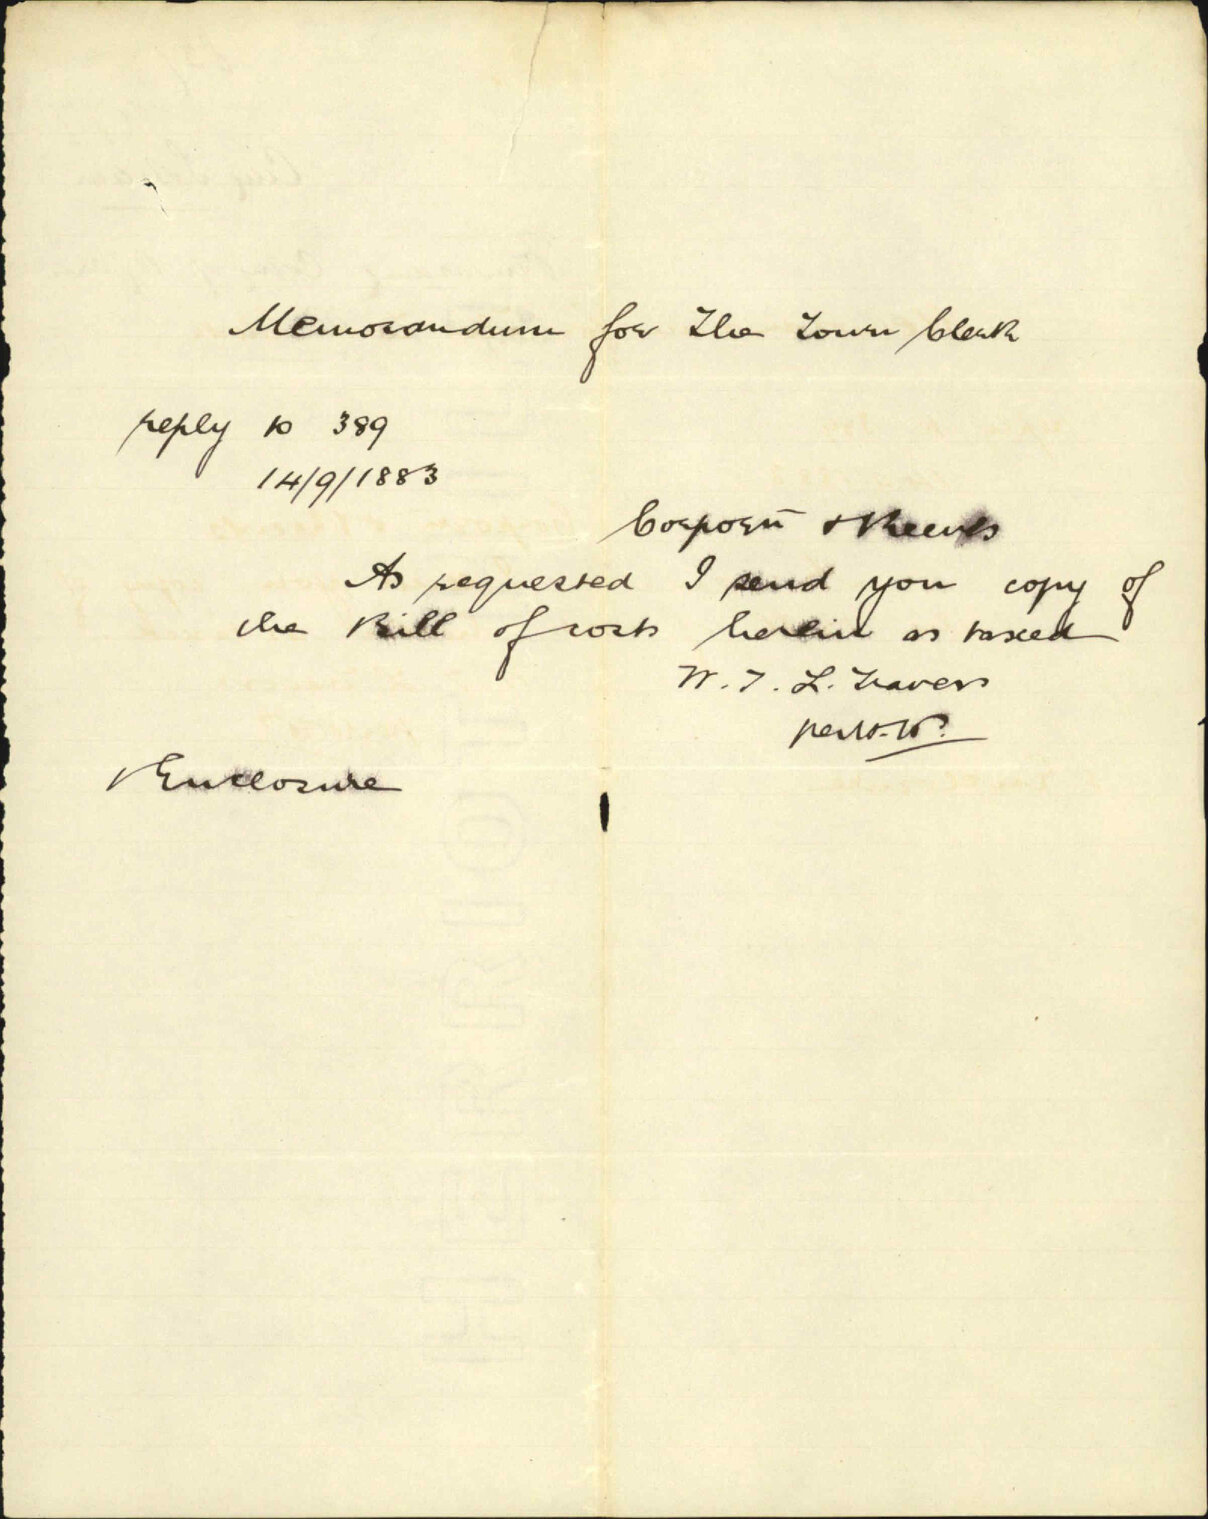 Memorandum for The Town Clerk
reply to 389
14/9/1883
Corporn v Reeves
As requested I send you copy of
the Bill of costs herein as taxed
W. T. L. Travers
per W.W.
1 Enclosure